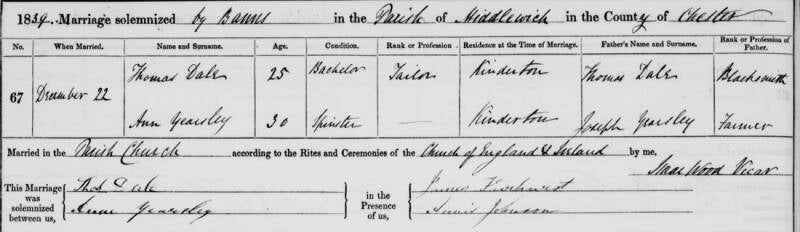 1839. Marriage solemnized by Banns in the Parish of Middlewich in the County of Chester
No. When Married. Name and Surname. Age. Condition. Rank or Profession. Residence at the Time of Marriage. Father's Name and Surname. Rank or Profession of Father.
67 December 22 Thomas Dale 25 Bachelor Tailor Kinderton Thomas Dale Blacksmith
Ann Yearsley 30 Spinster — Kinderton Joseph Yearsley Farmer
Married in the Parish Church according to the Rites and Ceremonies of the Church of England & Ireland by me,
Isaac Wood Vicar
This Marriage was solemnized between us, Thos Dale in the Presence of us, James
Anne Yearsley Johnson